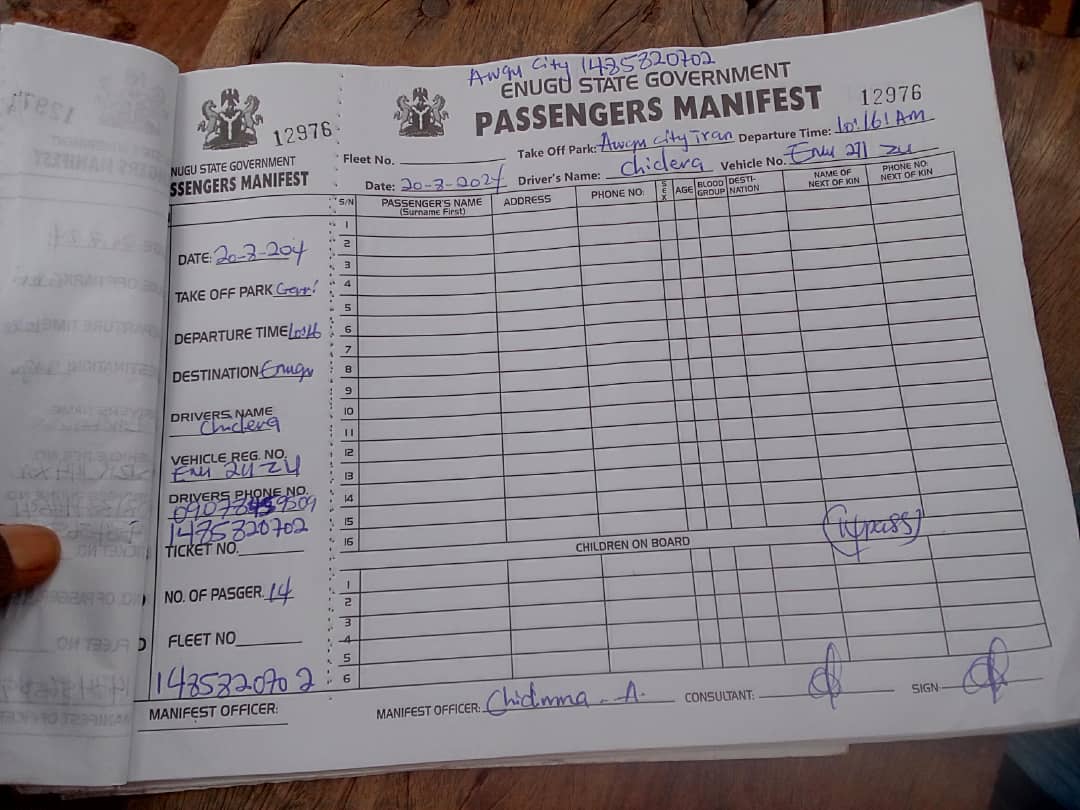 12976
ENUGU STATE GOVERNMENT
SSENGERS MANIFEST
DATE: 20-8-204
TAKE OFF PARK
DEPARTURE TIME 10:16
DESTINATION Enugu
DRIVERS NAME
Chidera
VEHICLE REG. NO.
Enu
DRIVERS PHONE NO.
1485820702
TICKET NO.
NO. OF PASGER. 14
FLEET NO
1485820702
MANIFEST OFFICER:
Awgu City 1485820702
ENUGU STATE GOVERNMENT
PASSENGERS MANIFEST 12976
Fleet No. Take Off Park: Awgu City Tran Departure Time: 10:16 AM
Date: 20-8-2024 Driver's Name: Chidera Vehicle No. Enu
S/N PASSENGER'S NAME (Surname First) ADDRESS PHONE NO: SEX AGE BLOOD GROUP DESTI-NATION NAME OF NEXT OF KIN PHONE NO. NEXT OF KIN
1
2
3
4
5
6
7
8
9
10
11
12
13
14
15
16
pass
CHILDREN ON BOARD
1
2
3
4
5
6
MANIFEST OFFICER: Chidimma . A. CONSULTANT: SIGN